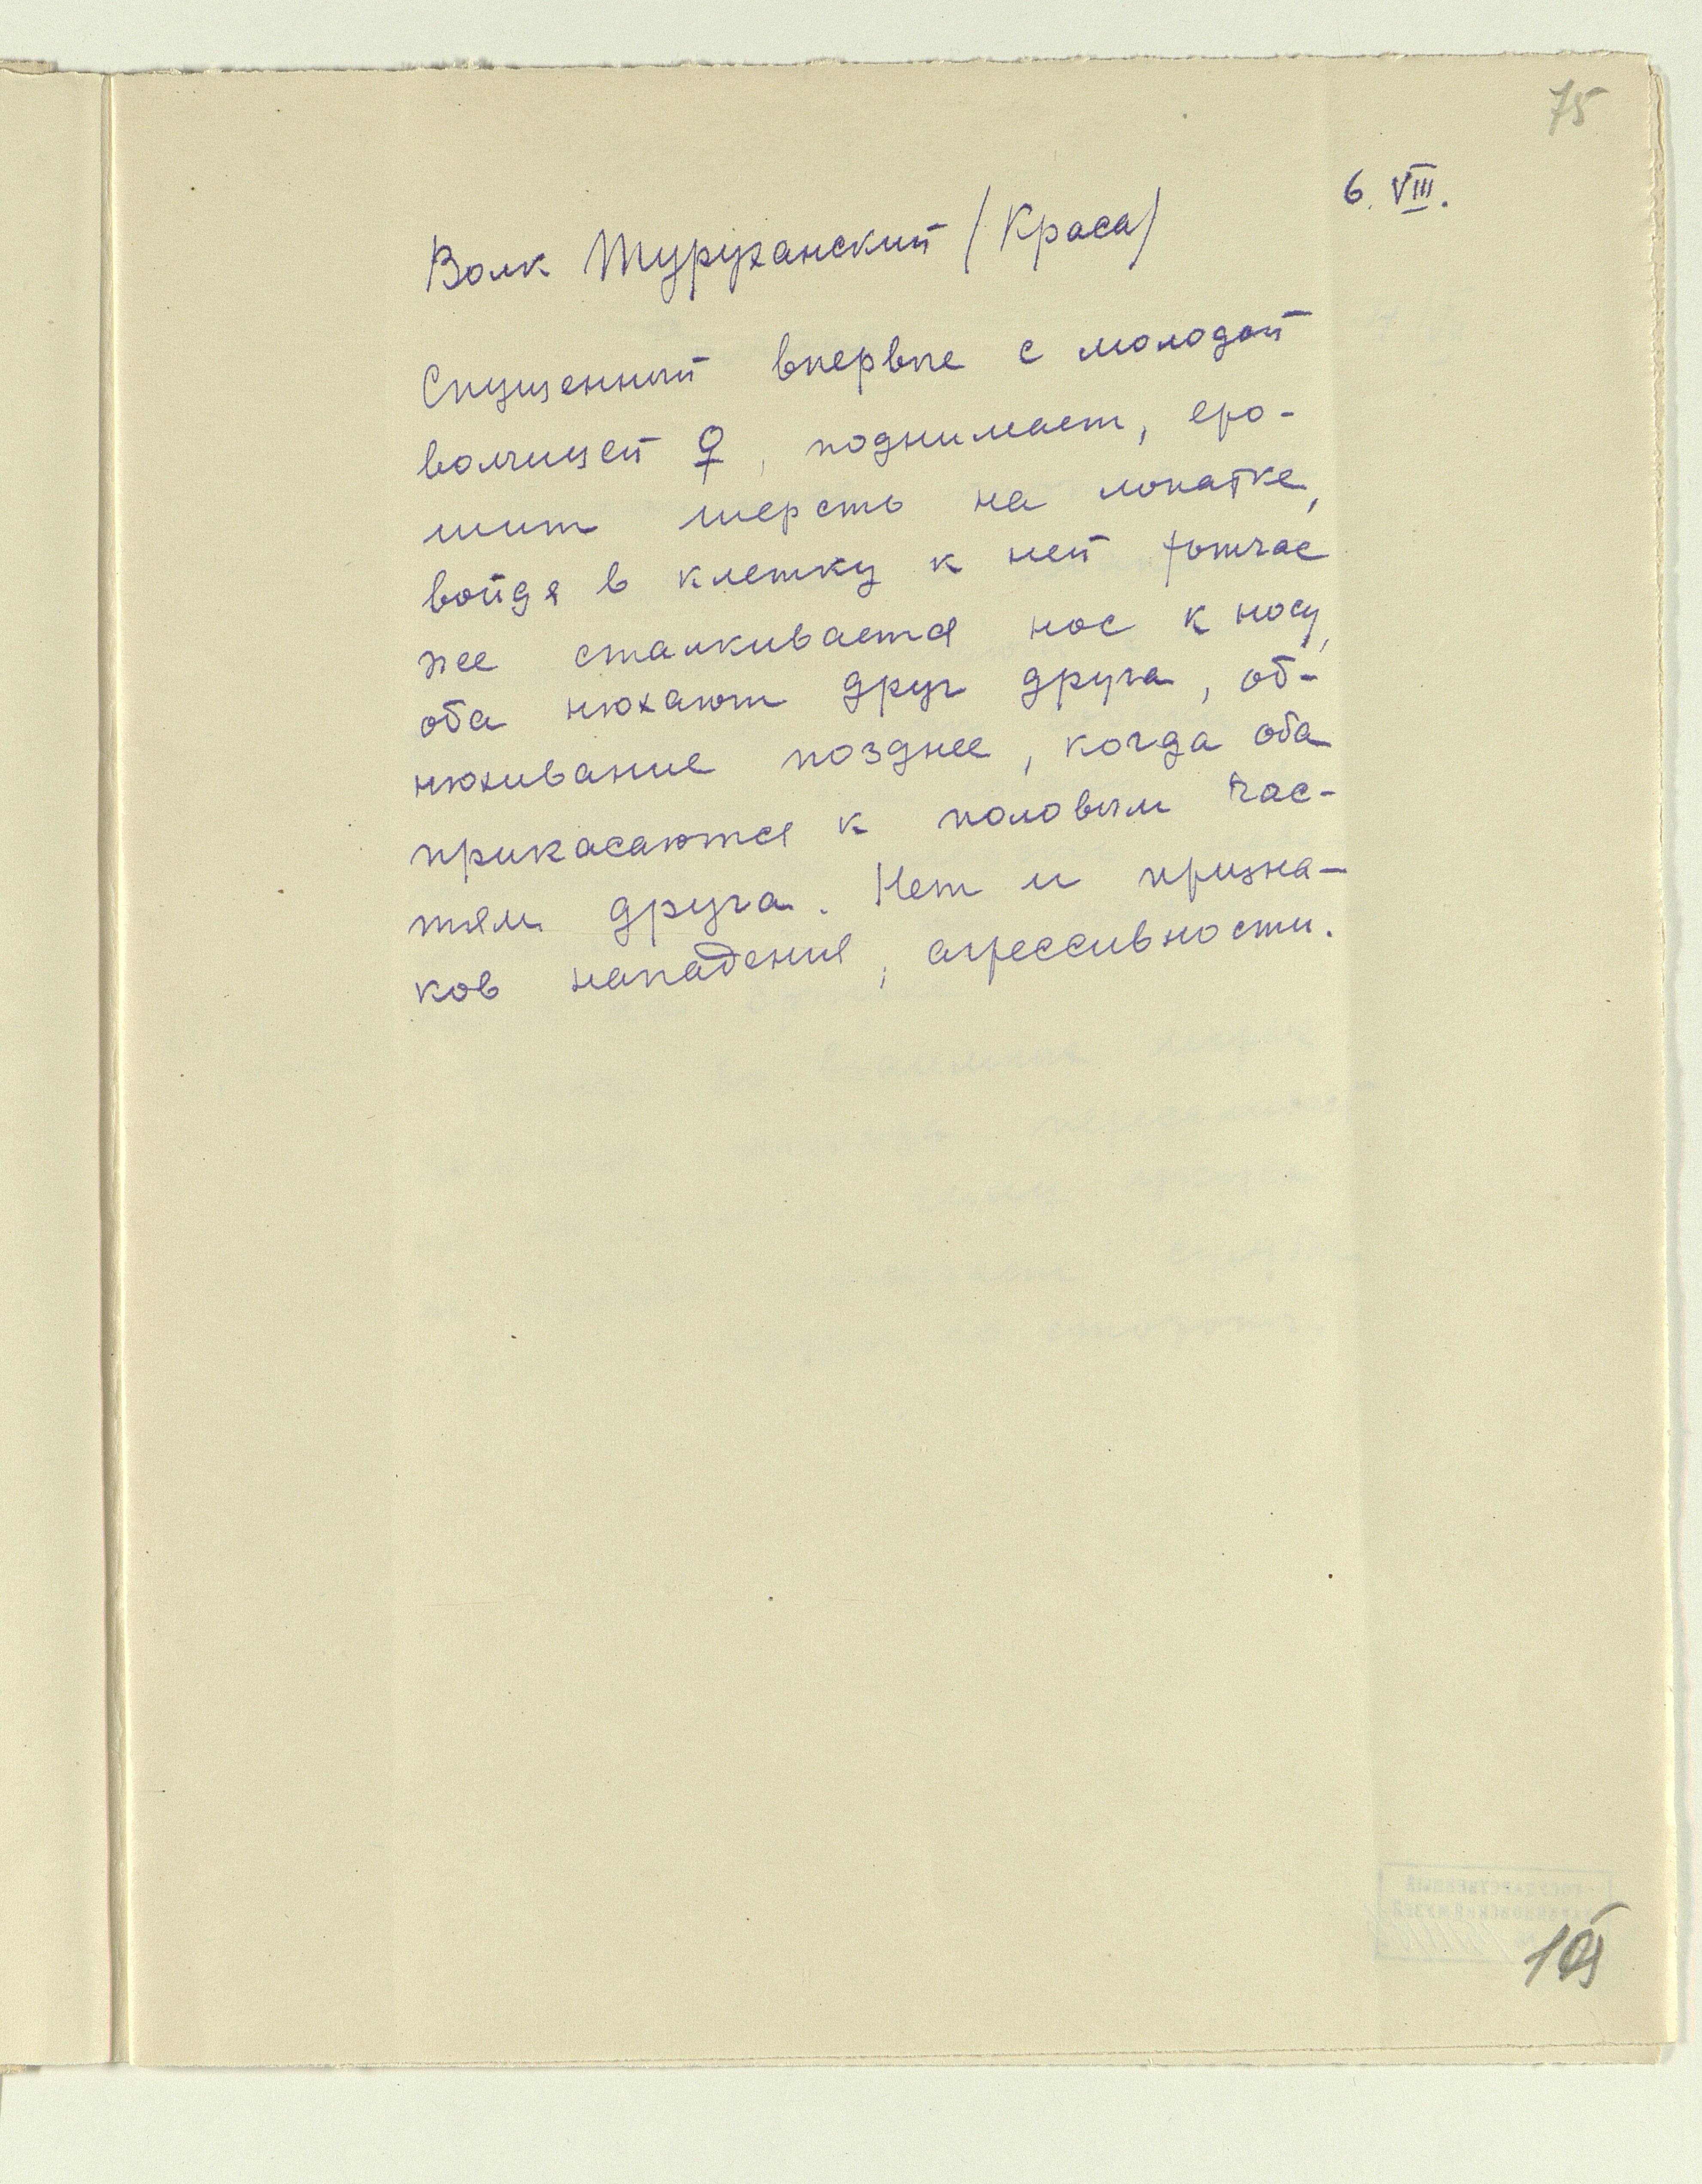 75
6. VIII.
Волк Туруханский (Краса)
Спущенный впервые с молодой
волчицей ♀, поднимает, еро-
шит шерсть на лопатке,
войдя в клетку к ней тотчас
же сталкивается нос к носу,
оба нюхают друг друга, об-
нюхивание позднее, когда оба
прикасаются к половым час-
тям друга. Нет и призна-
ков нападения, агрессивности.